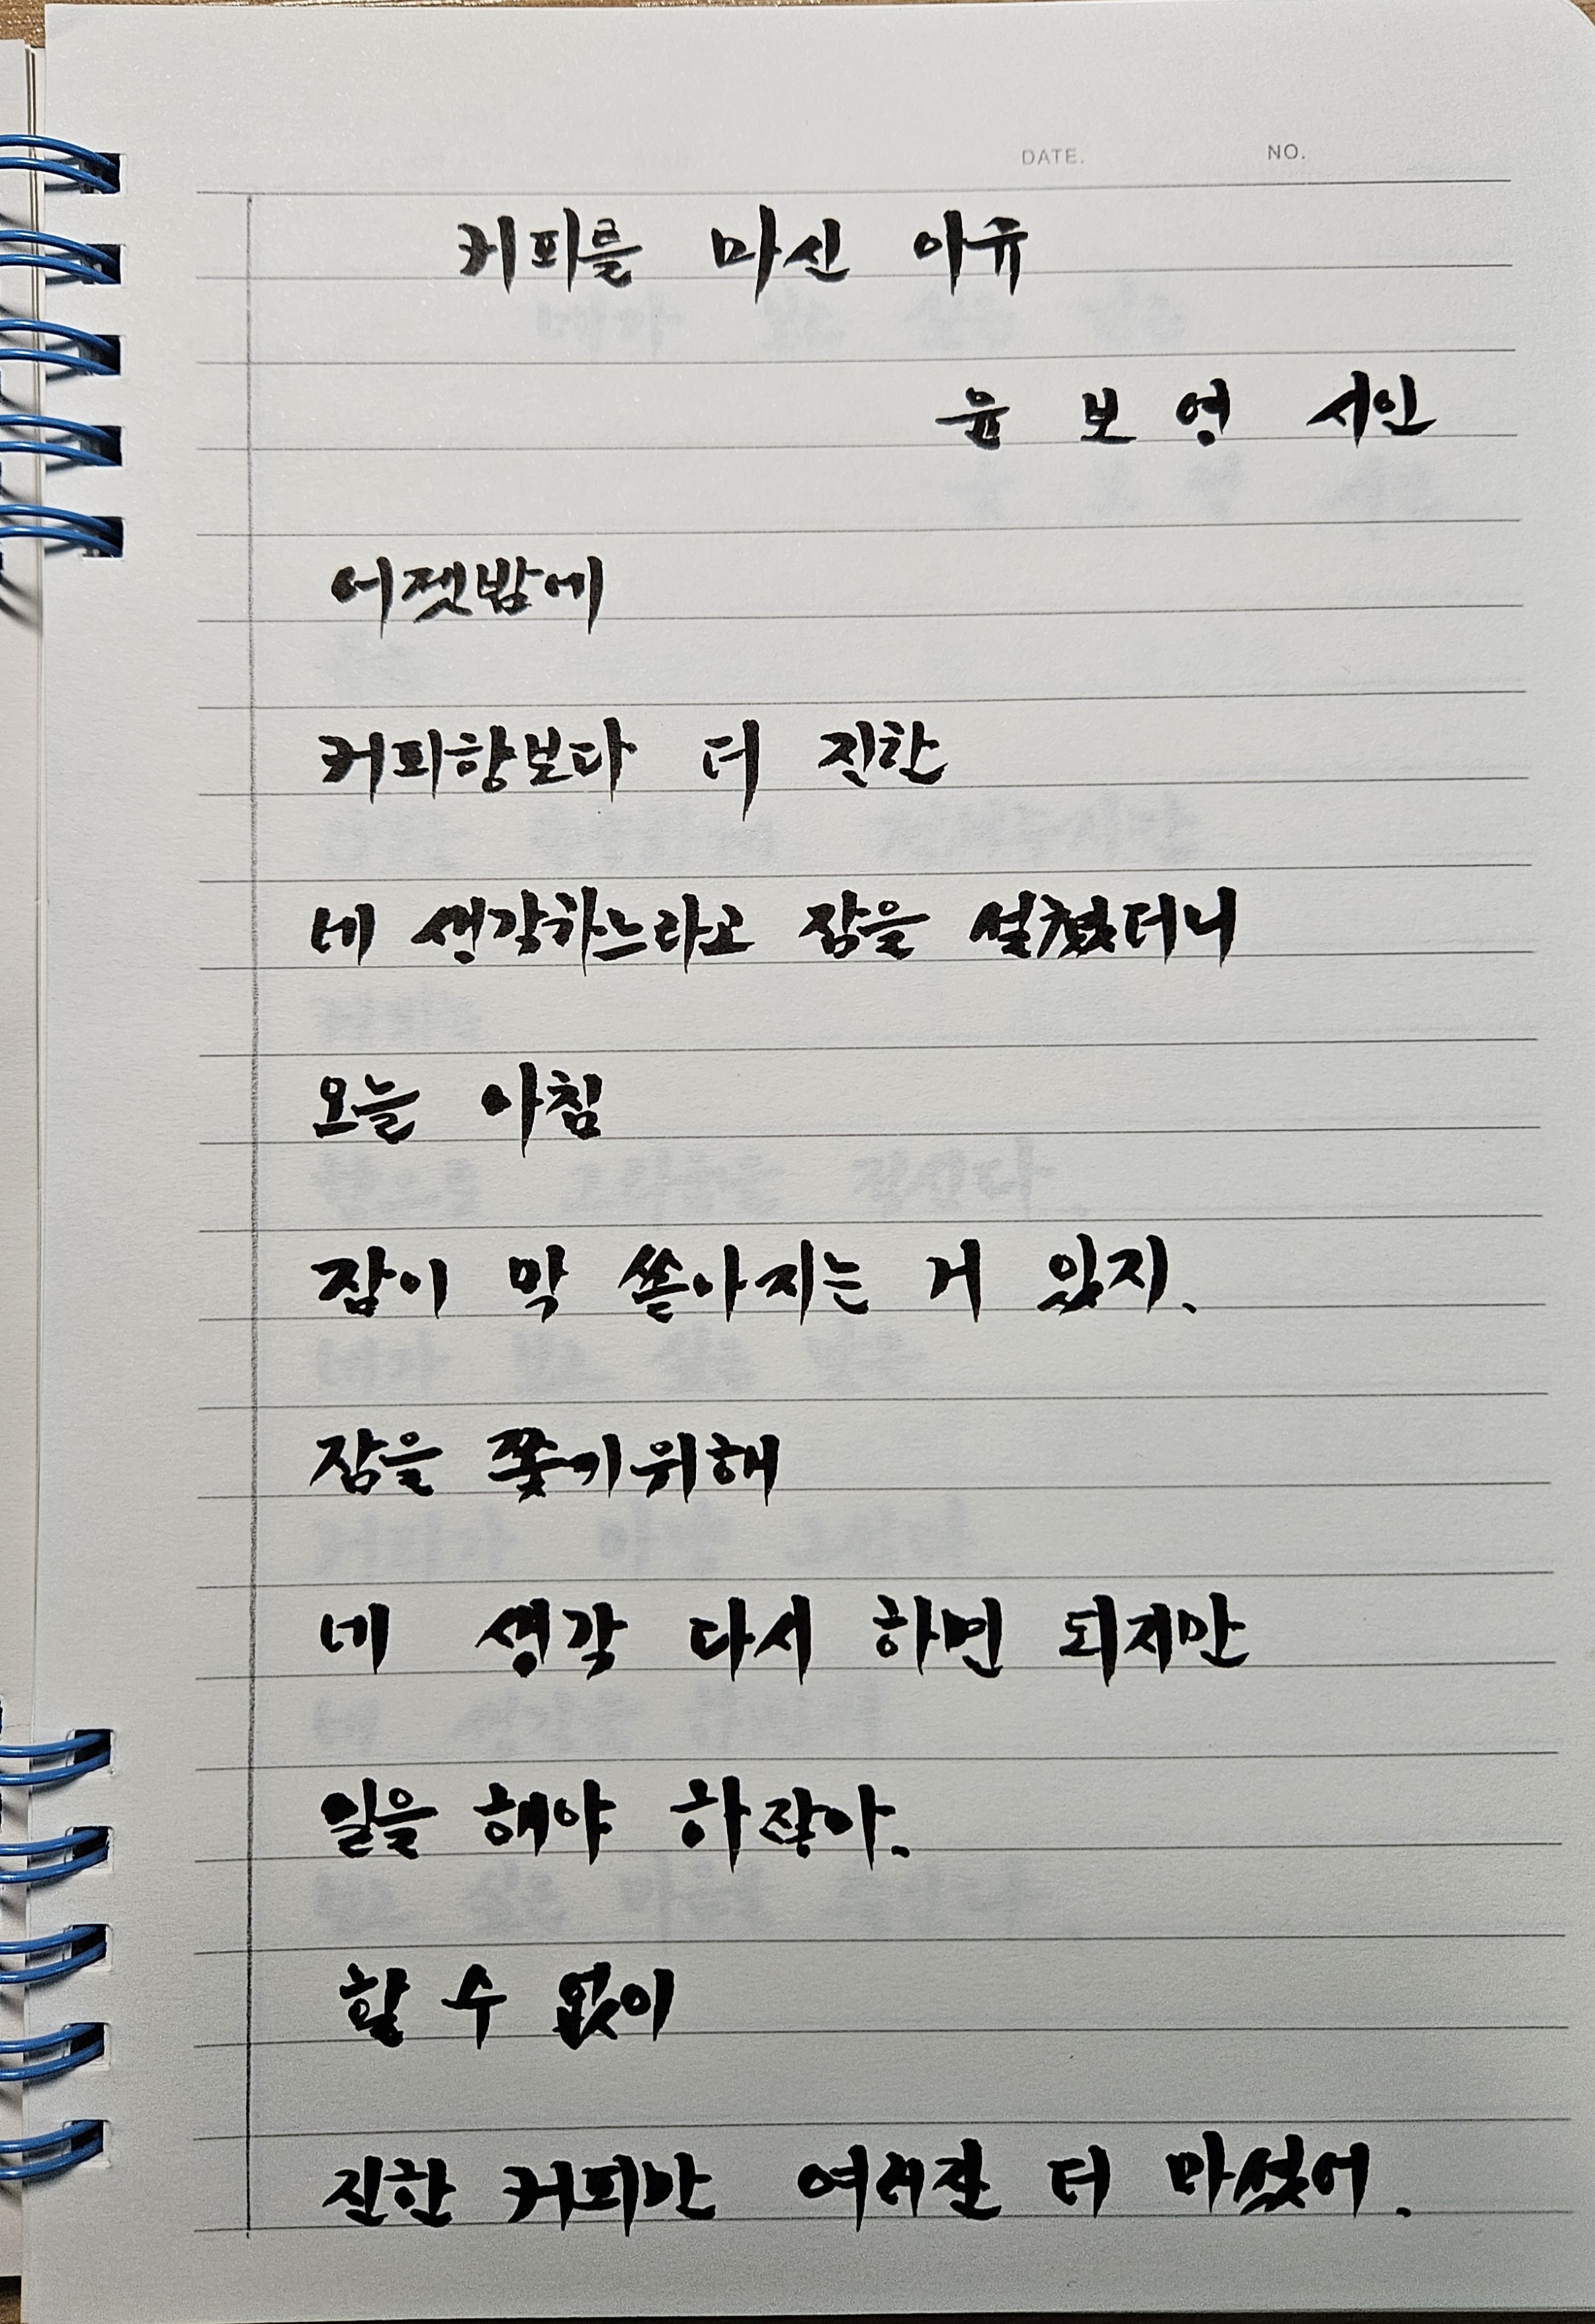 DATE. NO.
커피를 마신 이유
윤 보 영 시인
어젯밤에
커피향보다 더 진한
네 생각하느라고 잠을 설쳤더니
오늘 아침
잠이 막 쏟아지는 거 있지.
잠을 쫓기위해
네 생각 다시 하면 되지만
일을 해야 하잖아.
할 수 없이
진한 커피만 여러잔 더 마셨어.